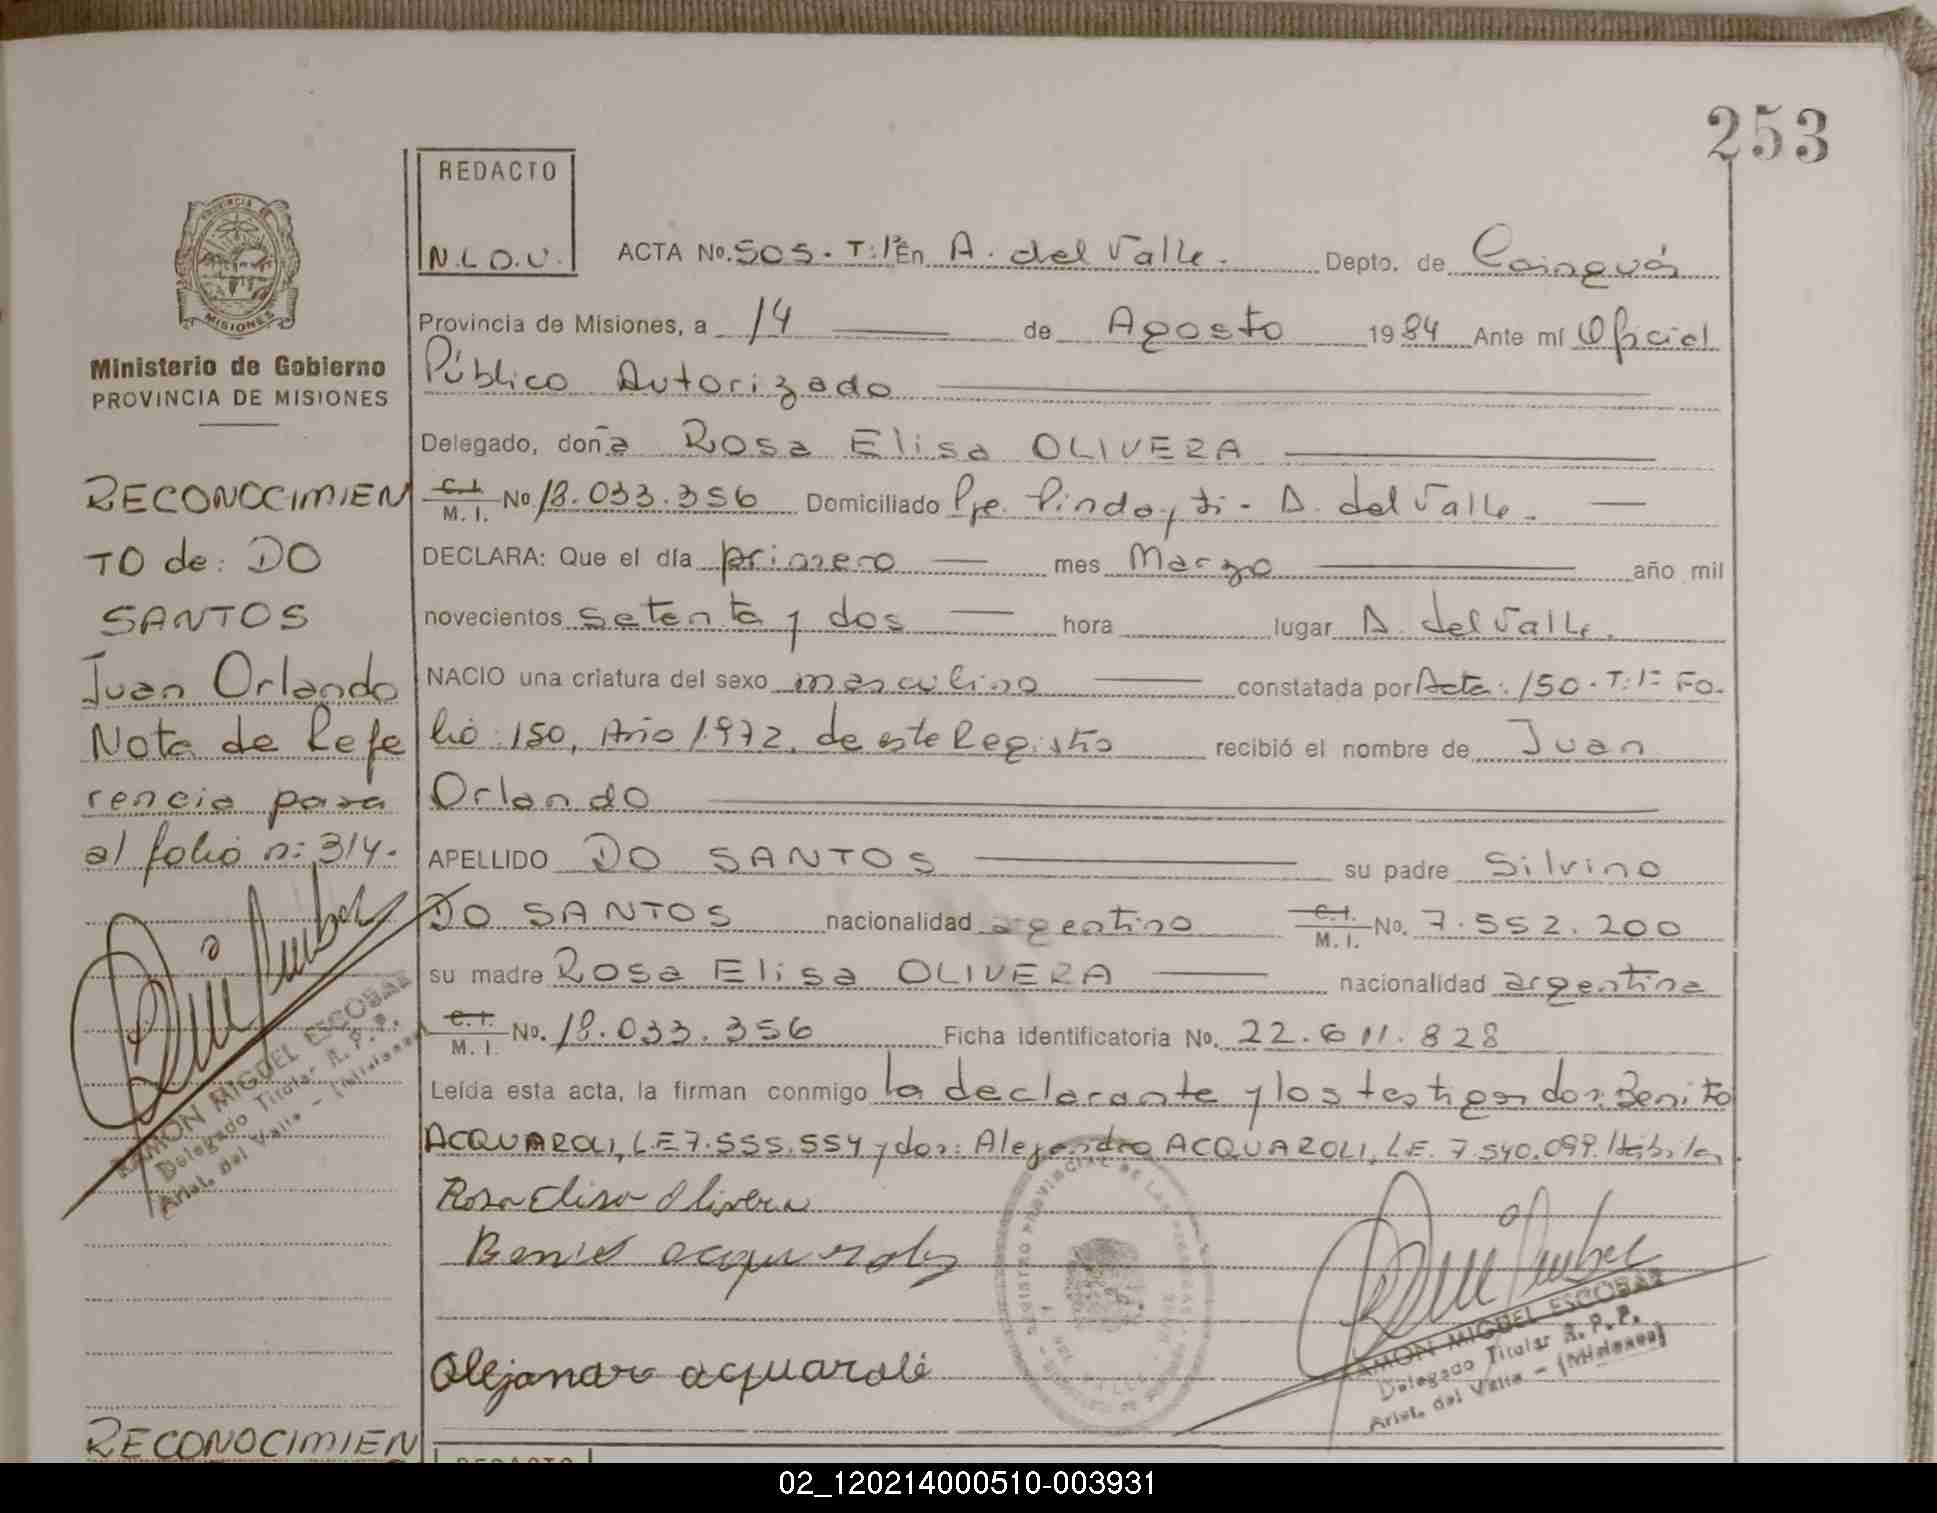 253
PROVINCIA DE
MISIONES
Ministerio de Gobierno
PROVINCIA DE MISIONES
RECONOCIMIEN
TO de: DO
SANTOS
Juan Orlando
Nota de Refe
rencia pasa
al folio n: 314.
RAMON MIGUEL ESCOBAR
Delegado Titular R. P. P.
Arist. del Valle - (Misiones)
REDACTO
N.L.O.U.
ACTA No. 505. T: 1º En A. del Valle. Depto. de Cainguás
Provincia de Misiones, a 14 de Agosto 1984 Ante mí Oficial
Público Autorizado
Delegado, doña Rosa Elisa OLIVERA
C.I. M. I. No 18.033.356 Domiciliado Pje. Pindayti - A. del Valle.
DECLARA: Que el día primero mes Marzo año mil
novecientos setenta y dos hora lugar A. del Valle.
NACIO una criatura del sexo masculino constatada por Acta: 150. T: 1º Fo-
lio: 150, Año 1972, de este Registro recibió el nombre de Juan
Orlando
APELLIDO DO SANTOS su padre Silvino
DO SANTOS nacionalidad argentino C.I. M. I. No. 7.552.200
su madre Rosa Elisa OLIVERA nacionalidad argentina
C.I. M. I. No. 18.033.356 Ficha identificatoria No. 22.611.828
Leída esta acta, la firman conmigo la declarante y los testigos don: Benito
ACQUAROLI, L.E 7.555.554 y don: Alejandro ACQUAROLI, L.E. 7.540.099. Hábiles.
Rosa Elisa Olivera
Benito acquaroli
Alejandro acquaroli
REGISTRO PROVINCIAL DE LAS PERSONAS
RAMON MIGUEL ESCOBAR
Delegado Titular R. P. P.
Arist. del Valle - (Misiones)
RECONOCIMIEN
REDACTO
02_120214000510-003931